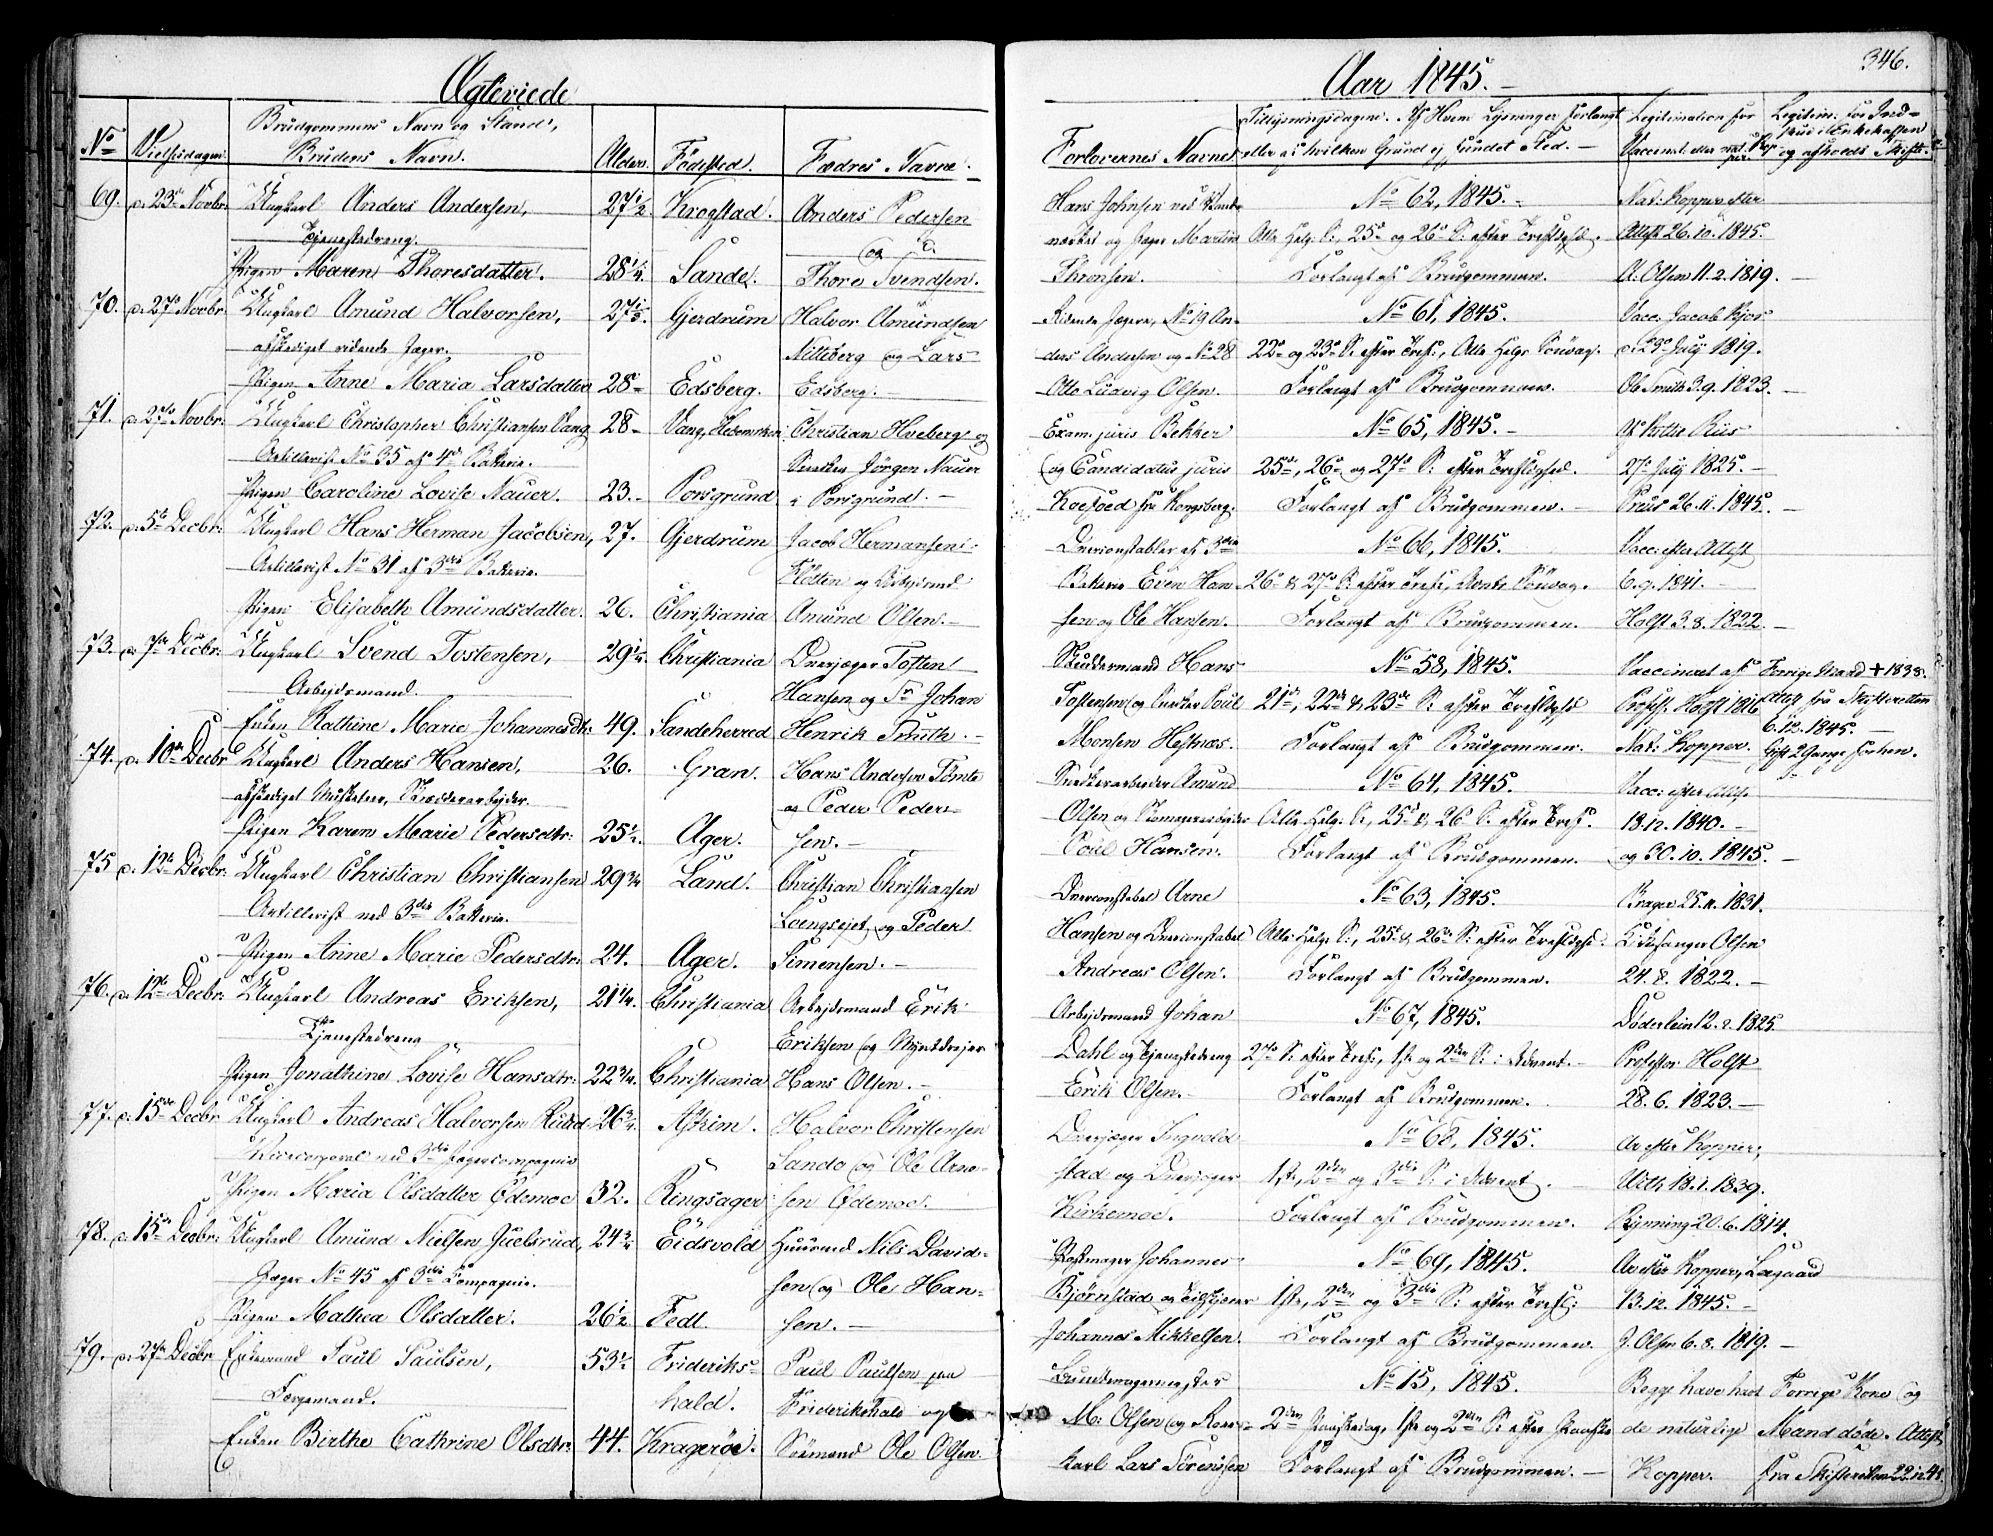 Ægteviede
No
Vielsesdagen
Brudgommens Navn og Stand,
Brudens Navn.
Alder.
Fødested.
Fædres Navne.
69. d. 23de Novbr. Ungkarl Anders Andersen, 27½ Krogstad. Anders Pedersen
Tjenestedreng. og
Pigen Maren Thoresdatter. 28¼. Sande. Thore Svendsen.
70. d. 27de Novbr. Ungkarl Amund Halvorsen, 27½. Gjerdrum Halvor Amundsen
afskediget ridende Jæger. Nitteberg og Lars
Pigen Anne Maria Larsdatter 28 Edsberg. Edsberg.
71. d. 27de Novbr. Ungkarl Christopher Christiansen Vang 28 Vang, Hedemarken Christian Hveberg og
Artillerist No 35 af 4de Batterie. Snedker Jørgen Nauer
Pigen Caroline Lovise Nauer. 23. Porsgrund i Porsgrund.
72. d. 5te Decbr: Ungkarl Hans Herman Jacobsen, 27. Gjerdrum Jacob Hermansen
Artillerist No 31 af 3die Batterie. og
Pigen Elisabeth Amundsdatter. 26. Christiania Amund Olsen.
73. d. 7de Decbr: Ungkarl Svend Tostensen, 29¼. Christiania Overjæger Tosten
Arbejdsmand. Hansen og Sr Johan
Enken Kathine Marie Johannesdtr: 49. Sandeherred Henrik Smith.
74. d. 10de Decbr Ungkarl Anders Hansen, 26. Gran. Hans Andersen Tømte
afskediget Musketeer, Skrædderarbejder. og Peder Peder-
Pigen Karen Marie Pedersdtr: 25½. Ager. sen.
75 d. 12te Decbr: Ungkarl Christian Christiansen 29¾ Land. Christian Christiansen
Artillerist ved 3die Batterie. Loengsejet og Peder
Pigen Anne Marie Pedersdtr: 24. Ager. Simensen.
76. d. 12te Decbr: Ungkarl Andreas Eriksen, 21¼. Christiania Arbejdsmand Erik
Tjenestedreng Eriksen og Myntdrejer
Pigen Jonathine Lovise Hansdtr: 22¾. Christiania Hans Olsen.
77. d. 15de Decbr Ungkarl Andreas Halvorsen Ruud 26¾ Askim. Halvor Christensen
Vicecorporal ved 3die Jægercompagnie Sando og Ole Arne-
Pigen Maria Olsdatter Ødemoe 32. Ringsager sen Ødemoe.
78. d. 15de Decbr: Ungkarl Amund Nielsen Juelsrud, 24¾ Eidsvold Huusmd Nils David-
Jæger No 45 af 3die Compagnie. sen og Ole Han-
Pigen Mathea Olsdatter. 26½ Fedt. sen.
79. d. 27de Decbr Enkemand Paul Paulsen, 53½ Frideriks- Paul Paulsen paa
Færgemand. hald. Friderikshald og
Enken Birthe Cathrine Olsdtr: 44. Kragerøe. Sømand Ole Olsen.
Aar 1845.
346.
Forlovernes Navne
Tillysningsdagene. Af Hvem Lysninger forlangt
eller af hvilken Grund ej fundet Sted.
Legitimation for
Vaccinat. eller nat. Kop-
per
Legitim. for Ind-
trud i Enkestanden
og afholdt Skifte.
Hans Johnsen No 62, 1845. Nat: Kopper efter
og Jæger Martin Alle Helg. S:, 25de og 26de S: efter Trefoldghd. Attest 26.10.1845.
Thronsen. Forlangt af Brudgommen. A. Olsen 11.2.1819.
Ridende Jægere, No 19 An- No 61, 1845. Vacc. Jacob Kjos
ders Andersen og No 28 22de og 23de S: efter Tref:, Alle Helgs Søndag. d. 23de July 1819.
Otto Ludvig Olsen. Forlangt af Brudgommen. Ob Smith 3.9.1823.
Exam. juris Bekker No 65, 1845. Riis
og Candidatus juris 25de, 26de og 27de S: efter Trefoldghd. 27de July 1825.
Koefoed fra Kongsberg. Forlangt af Brudgommen. 26.11.1845.
Overconstabler af 3die No 66, 1845. Vacc: efter Attest
Batterie Even Han- 26de & 27de S: efter Tref:, Advents Søndag. 6.9.1841.
sen og Ole Hansen. Forlangt af Brudgommen. Holst 3.8.1822.
Hans No 58, 1845. Vaccineret af Forrige Mand + 1838.
Tostensen og Snedker Poul 21de, 22de & 23de S: efter Trefoldghd Profess. Holst 1816 Attest fra Skifteretten
6.12.1845.
Monsen Hestnæs. Forlangt af Brudgommen. Nat: Kopper. Gift 2 Gange forhen.
Snedkerarbejder Amund No 64, 1845. Vacc: efter Attest
Olsen og Alle Helg: S:, 25de & 26 S: efter Tref. 18.12.1840.
Poul Hansen. Forlangt af Brudgommen. og 30.10.1845.
Overconstabel Arne No 63, 1845. Brager 25.11.1831.
Hansen og Overconstabel Alle Helgs S:, 25de & 26de S: efter Trefoldghd. Kirkesanger Olsen
Andreas Olsen. Forlangt af Brudgommen. 24.8.1822.
Arbejdsmand Johan No 67, 1845. Døderlein 12.2.1825
Dahl og Tjenestedreng 27de S: efter Tref:, 1ste og 2den S: i Advent. Professor Holst
Erik Olsen. Forlangt af Brudgommen. 28.6.1823.
Overjæger Ingvold- No 68, 1845. Ar efter Kopper,
stad og Overjæger 1ste, 2den og 3die S: i Advent. 18.1.1839.
Kirkemoe. Forlangt af Brudgommen. Rynning 20.6.1814.
Johannes No 69, 1845. Ar efter Kopper, Lægaard
Bjørnstad og 1ste, 2den og 3die S: efter Tref: 13.12.1845.
Johannes Mikkelsen. Forlangt af Brudgommen. J. Olsen 6.8.1819.
Bundtmagermester No 15, 1845. Begge have havt Forrige Kone og
M: Olsen og 2den Paaskedag, 1ste og 2den S: efter Paaske de naturlige Mand døde. Attest
karl Lars Sørensen Forlangt af Brudgommen. Kopper. fra Skifteretten 22.12.45